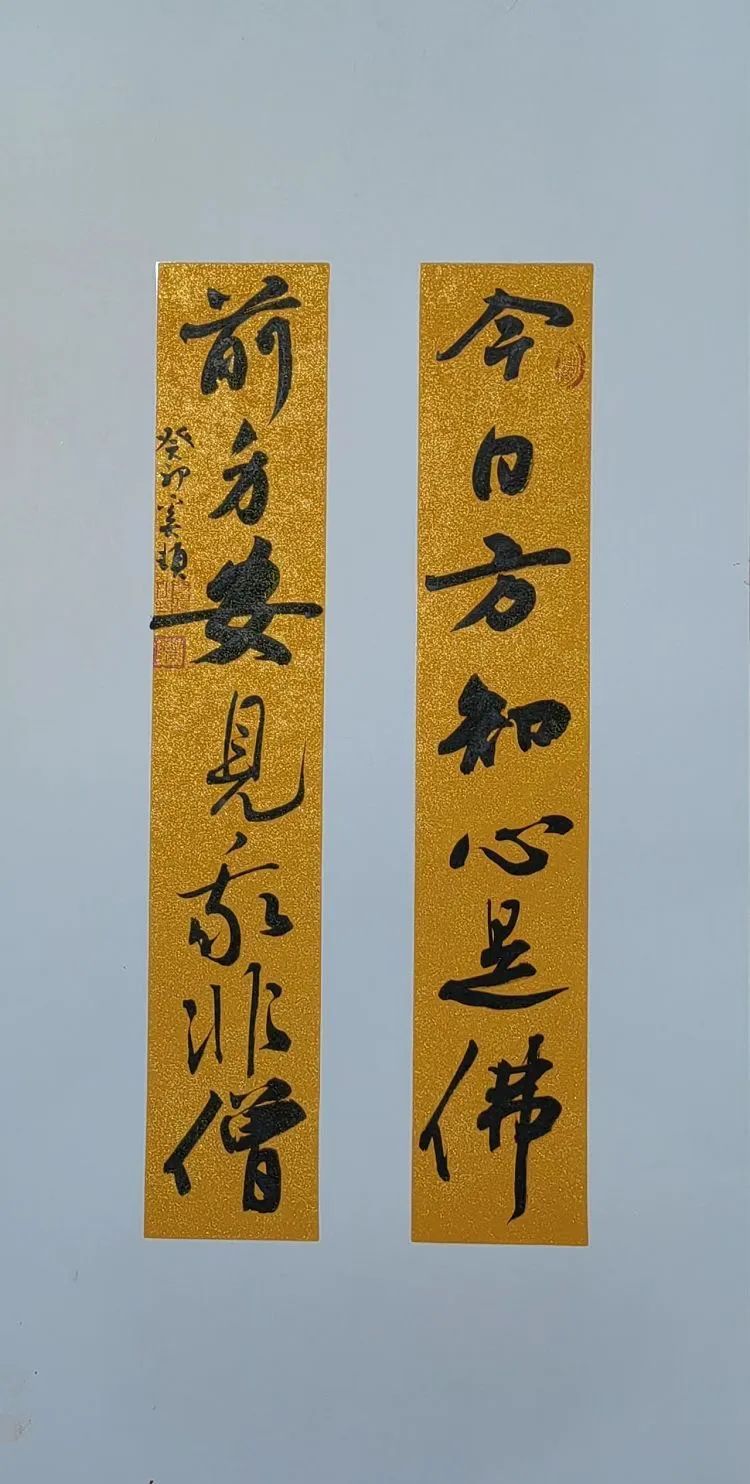 今日方知心是佛
前身安見我非僧
癸卯